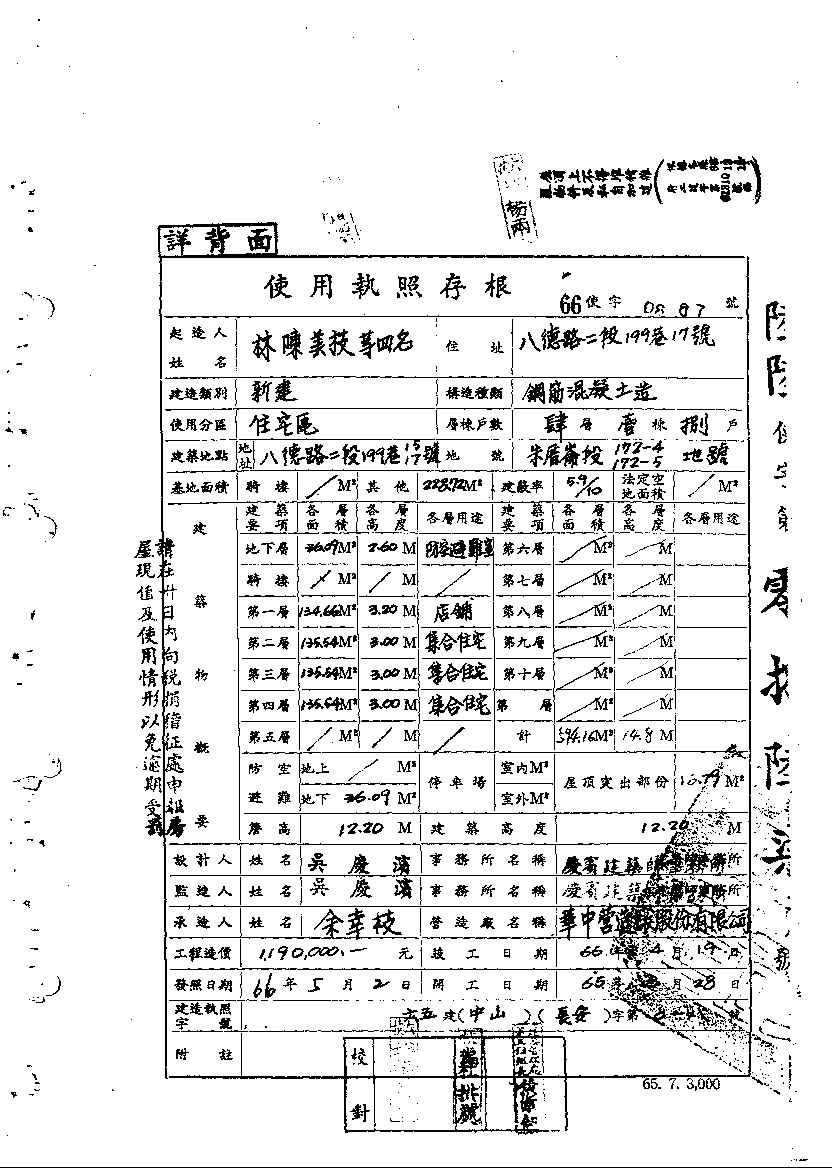 詳背面
使用執照存根
66使字 0887 號
起造人姓名 林陳美技等四名 住址 八德路二段199巷17號
建造類別 新建 構造種類 鋼筋混凝土造
使用分區 住宅區 層棟戶數 肆層壹棟捌戶
建築地點 地址 八德路二段199巷15 17號 地號 朱厝崙段172-4 172-5地號
基地面積 騎樓 / M² 其他 228.72M² 建蔽率 5.9/10 法定空地面積 / M²
建築物概要
建築要項 各層面積 各層高度 各層用途 建築要項 各層面積 各層高度 各層用途
地下層 36.09M² 2.60 M 防空避難室 第六層 / M² / M
騎樓 / M² / M / 第七層 / M² / M
第一層 134.66M² 3.20 M 店鋪 第八層 / M² / M
第二層 135.54M² 3.00 M 集合住宅 第九層 / M² / M
第三層 135.54M² 3.00 M 集合住宅 第十層 / M² / M
第四層 135.54M² 3.00 M 集合住宅 第 層 / M² / M
第五層 / M² / M / 計 594.16M² 14.8 M
防空避難 地上 / M² 停車場 室內M² 屋頂突出部份 16.79 M²
地下 36.09 M² 室外M²
簷高 12.20 M 建築高度 12.20 M
設計人 姓名 吳慶濱 事務所名稱 慶賓建築師事務所
監造人 姓名 吳慶濱 事務所名稱 慶賓建築師事務所
承造人 姓名 余幸枝 營造廠名稱 華中營造股份有限公司
工程造價 1,190,000.- 元 竣工日期 66年4月19日
發照日期 66年5月2日 開工日期 65年 月28日
建造執照字號 六五建(中山)(長安)字第 號
附註
校對
65. 7. 3,000
請在卅日內向稅捐稽征處申報房
屋現值及使用情形以免逾期受罰